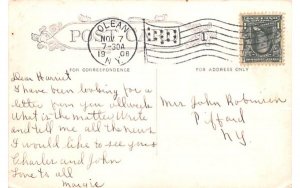 OLEAN
NOV 7
7-30A
1908
N.Y.
POST
1
FOR CORRESPONDENCE
FOR ADDRESS ONLY
Dear Harriet
I have been looking for a
letter from you all week
What is the matter Write
and tell me all the news
I would like to see you
Charles and John
Love to all
Margie
Mrs John Robinson
Piffard
NY